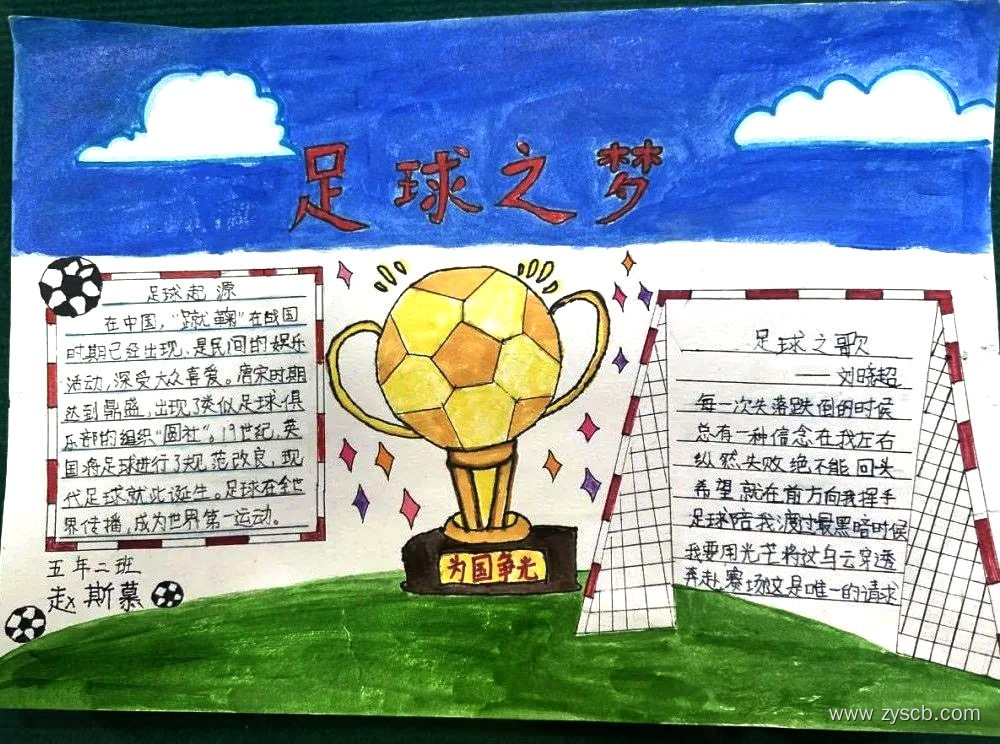 足球之梦
足球起源
在中国，“蹴鞠”在战国
时期已经出现，是民间的娱乐
活动，深受大众喜爱。唐宋时期
达到鼎盛，出现了类似足球俱
乐部的组织“圆社”。19世纪，英
国将足球进行了规范改良，现
代足球就此诞生。足球在全世
界传播，成为世界第一运动。
五年二班
赵斯慕
为国争光
足球之歌
——刘晓超
每一次失落跌倒的时候
总有一种信念在我左右
纵然失败绝不能回头
希望就在前方向我挥手
足球陪我渡过最黑暗时候
我要用光芒将这乌云穿透
奔赴赛场是唯一的请求
www.zyscb.com